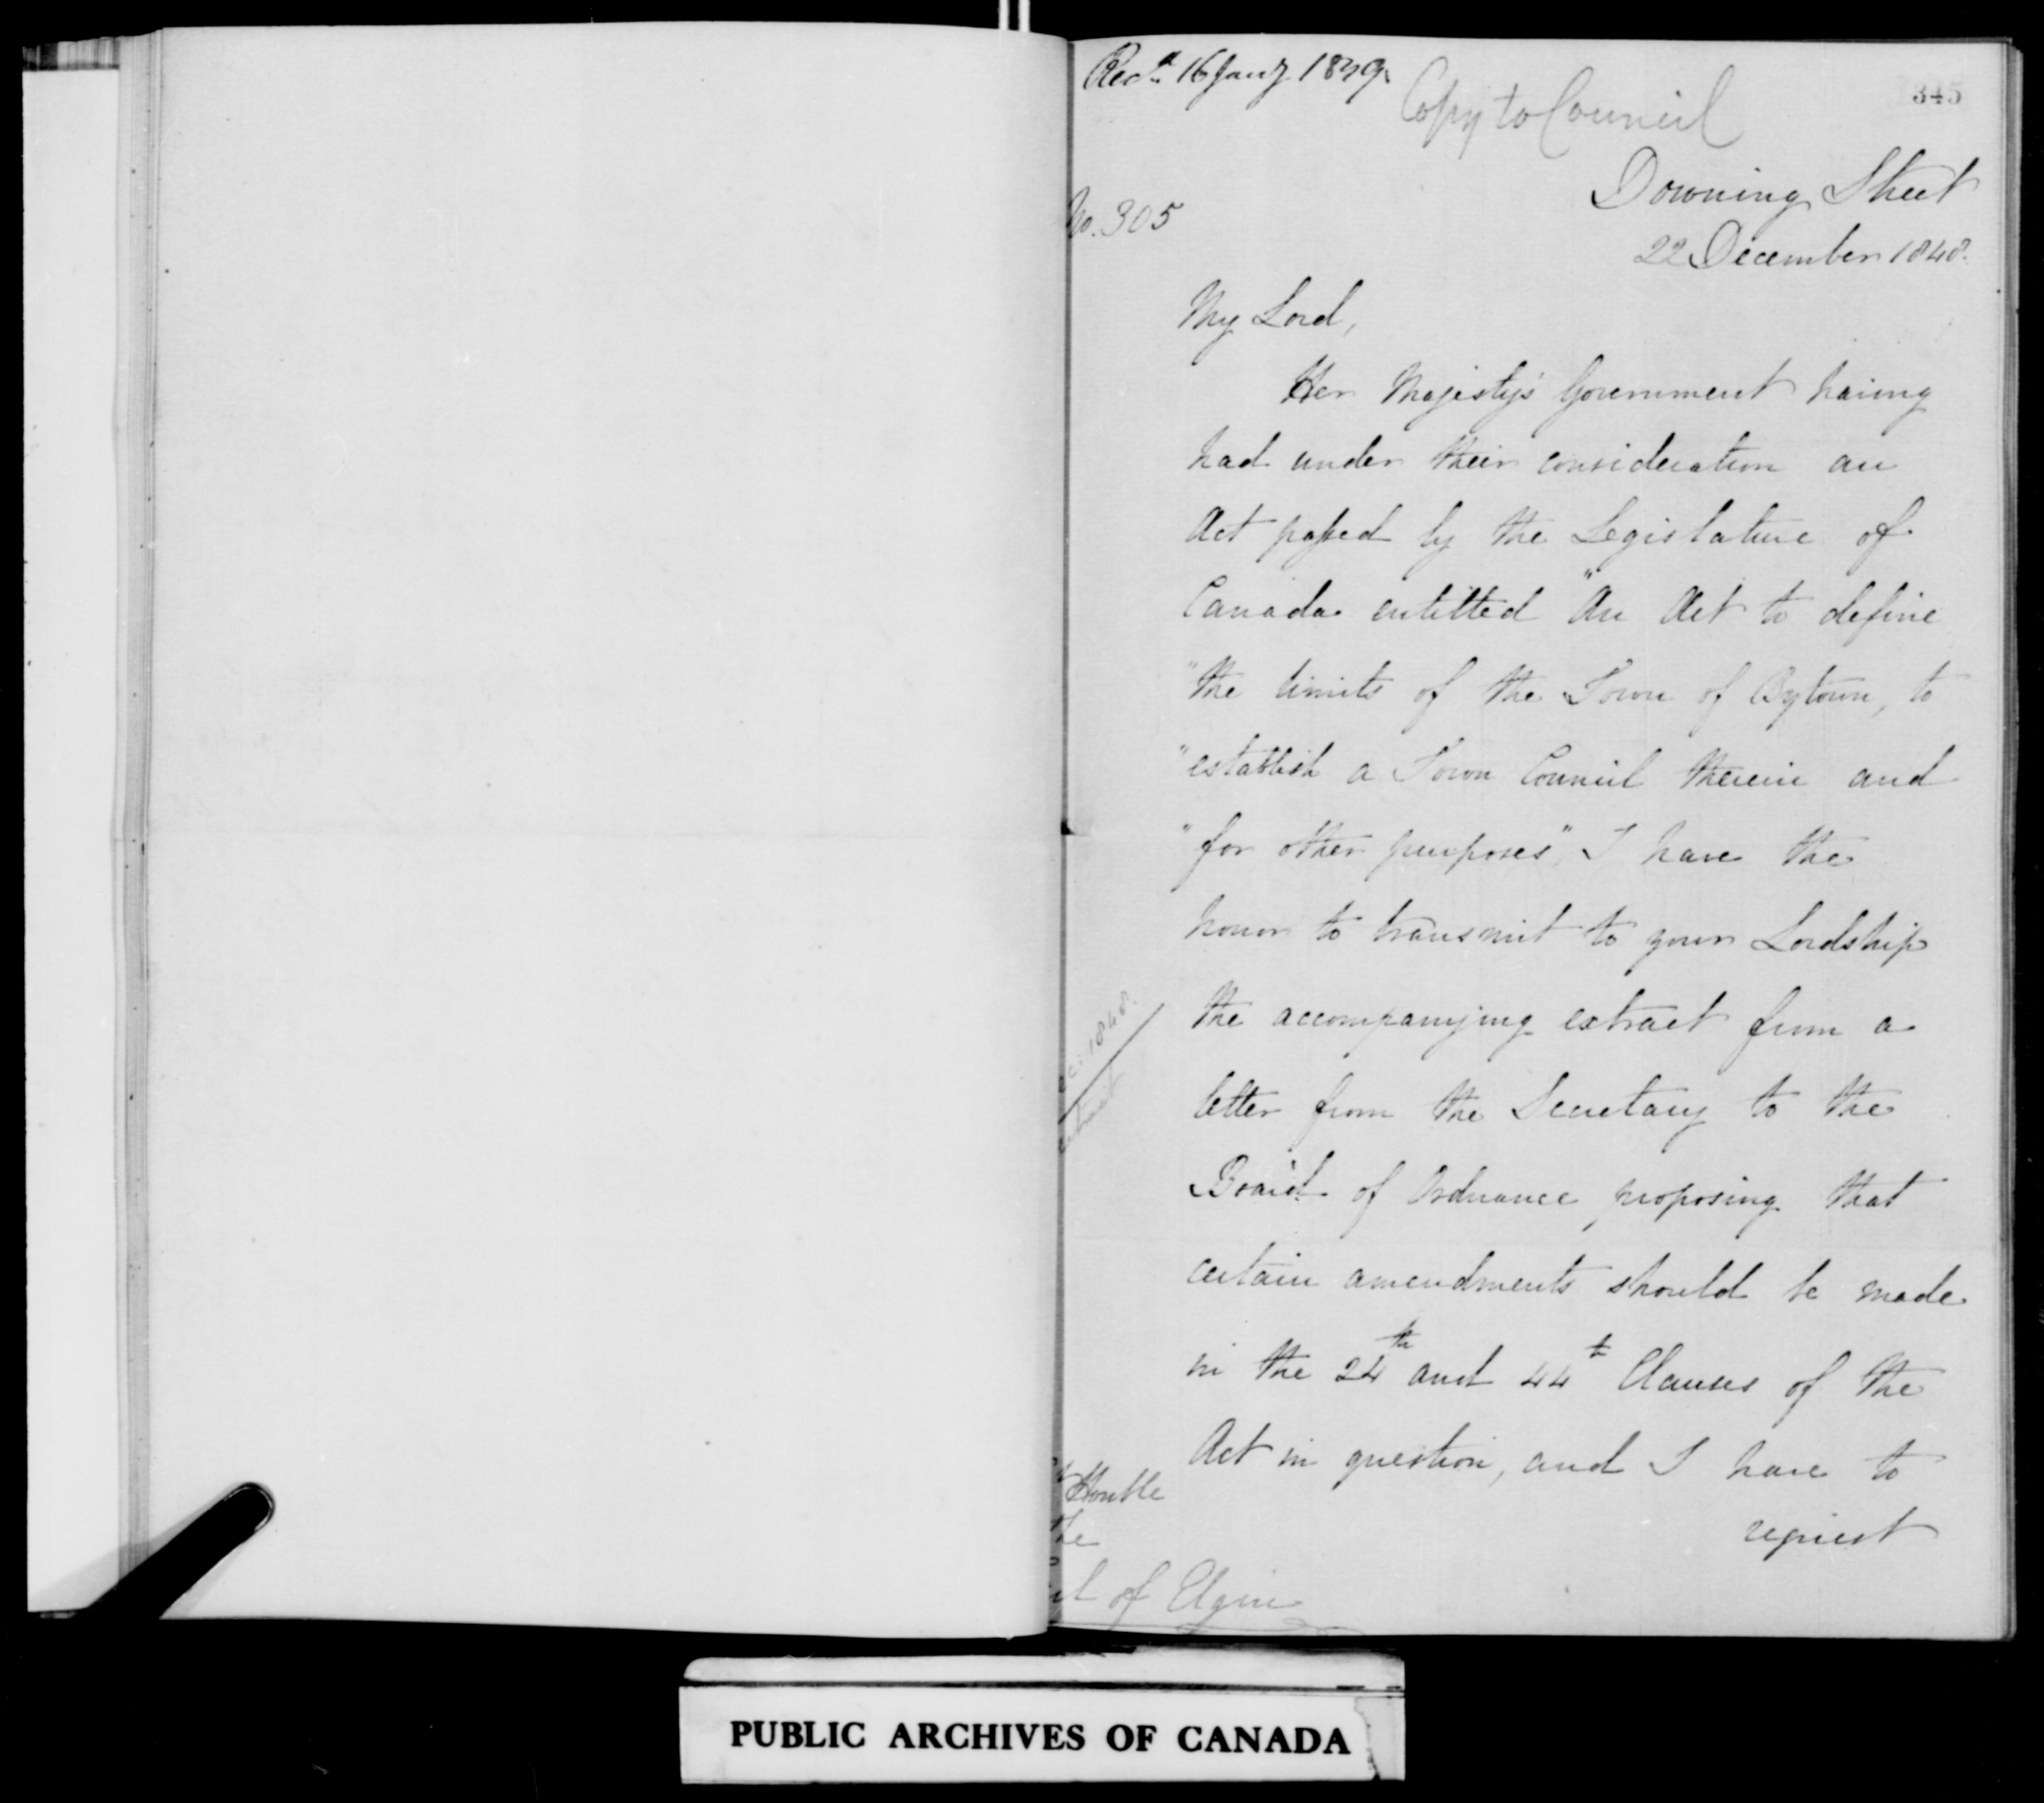 Recd. 16 Jany 1849.
Copy to Council
345
No. 305
Downing Street
22 December 1848.
My Lord,
Her Majesty's Government having
had under their consideration an
Act passed by the Legislature of
Canada entitled "An Act to define
"the limits of the Town of Bytown, to
"establish a Town Council therein and
"for other purposes", I have the
honor to transmit to your Lordship
the accompanying extract from a
letter from the Secretary to the
Board of Ordnance proposing that
certain amendments should be made
in the 24th and 44th Clauses of the
Act in question, and I have to
request
1848.
Honble
the
of Elgin
PUBLIC ARCHIVES OF CANADA